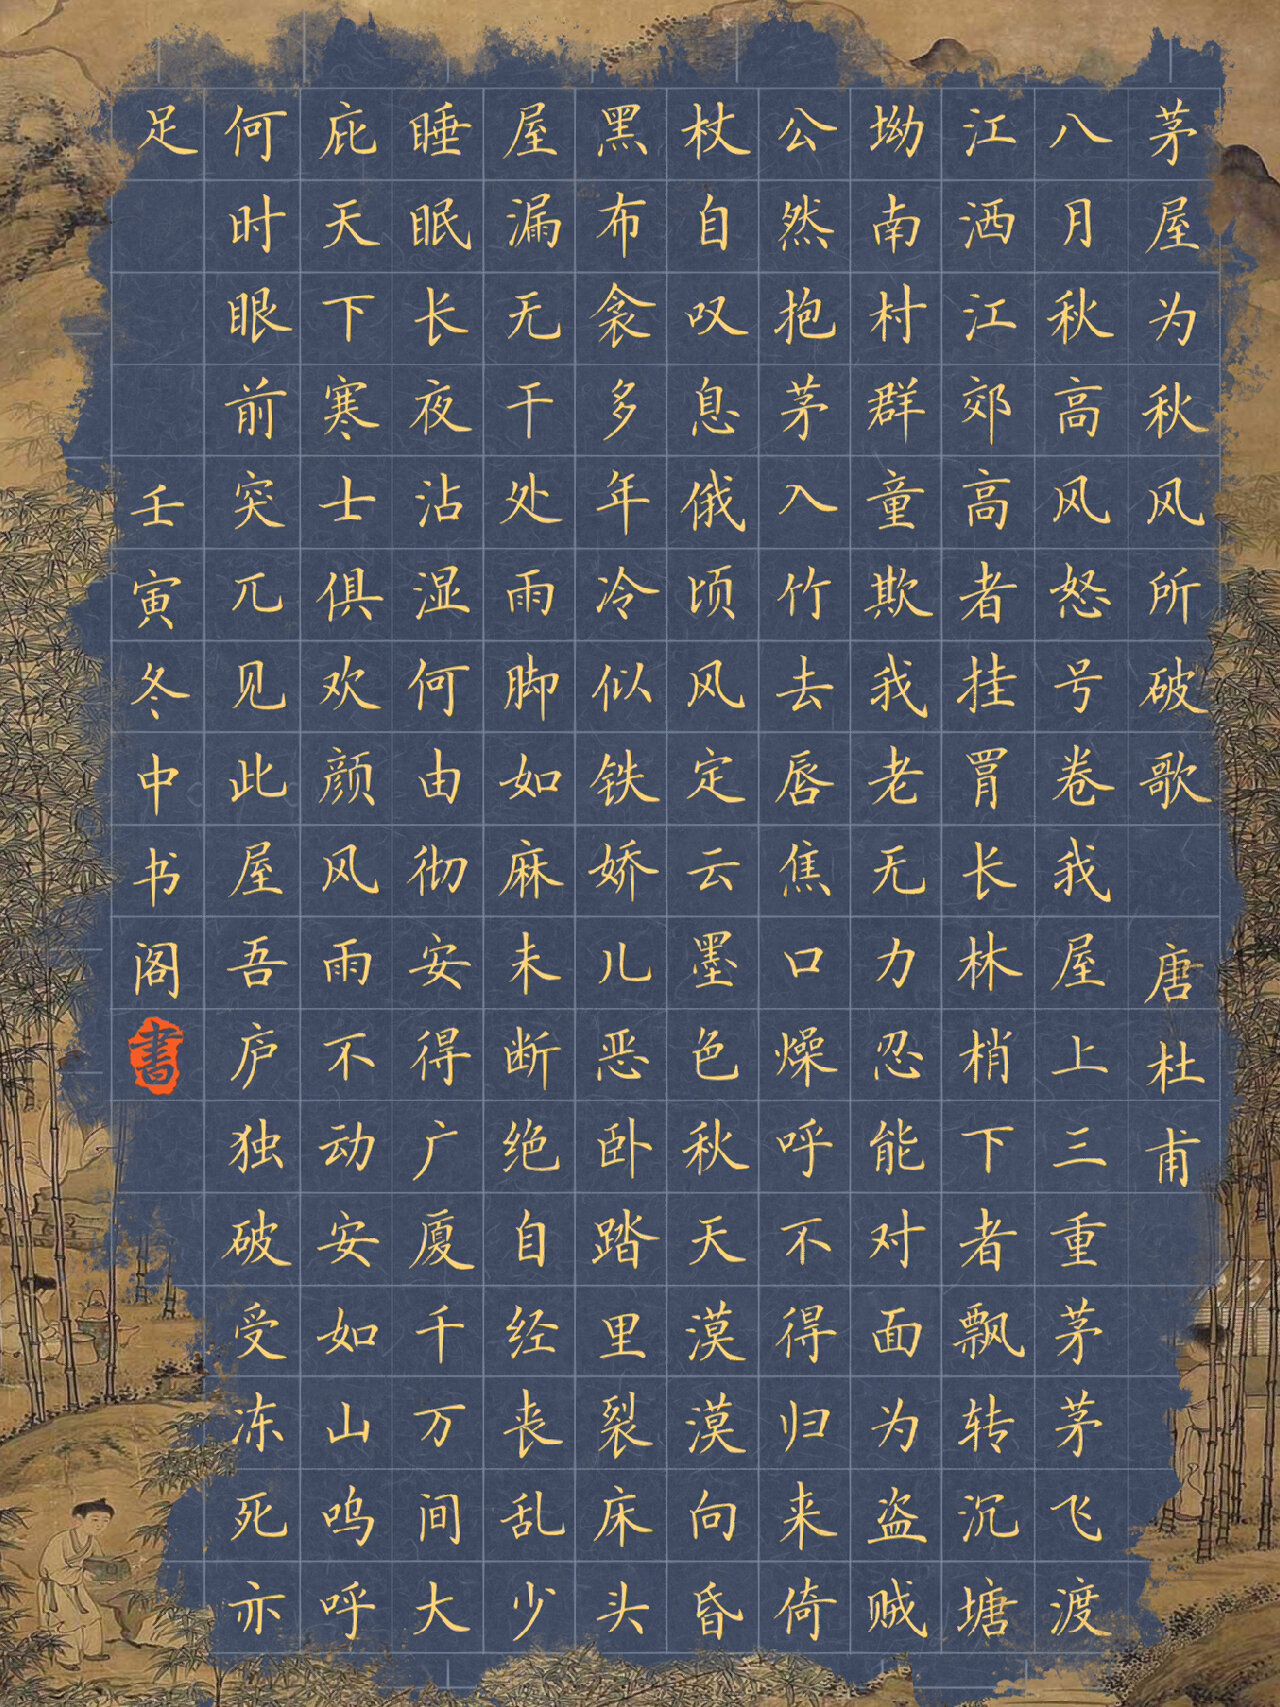 茅屋为秋风所破歌 唐杜甫
八月秋高风怒号卷我屋上三重茅茅飞渡
江洒江郊高者挂罥长林梢下者飘转沉塘
坳南村群童欺我老无力忍能对面为盗贼
公然抱茅入竹去唇焦口燥呼不得归来倚
杖自叹息俄顷风定云墨色秋天漠漠向昏
黑布衾多年冷似铁娇儿恶卧踏里裂床头
屋漏无干处雨脚如麻未断绝自经丧乱少
睡眠长夜沾湿何由彻安得广厦千万间大
庇天下寒士俱欢颜风雨不动安如山呜呼
何时眼前突兀见此屋吾庐独破受冻死亦
足 壬寅冬中书阁
書